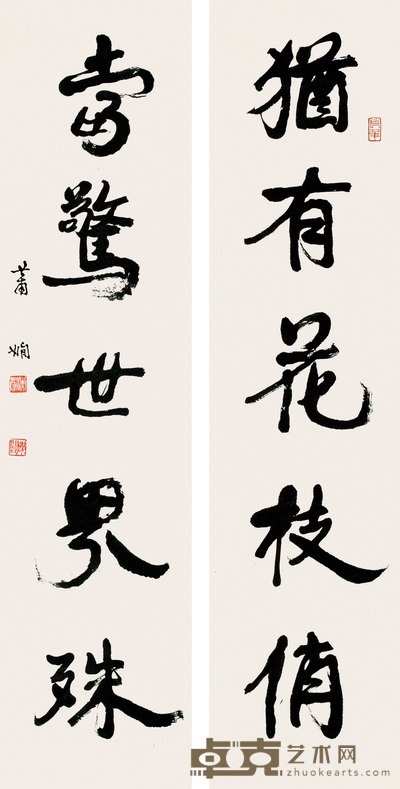 猶有花枝俏
當驚世界殊
蕭嫻
卓克艺术网
zhuokearts.com